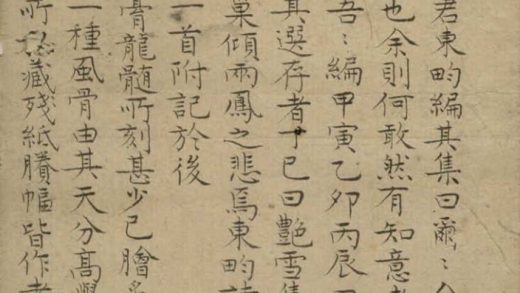 君東畇編其集曰爾〻
也余則何敢然有知意者
吾〻編甲寅乙卯丙辰
其選存者丁巳曰艷雪集
巢傾兩鳳之悲焉東畇詩
一首附記於後
骨龍髓所刻甚少已膾
一種風骨由其天分高學
藏殘紙賸幅皆作者